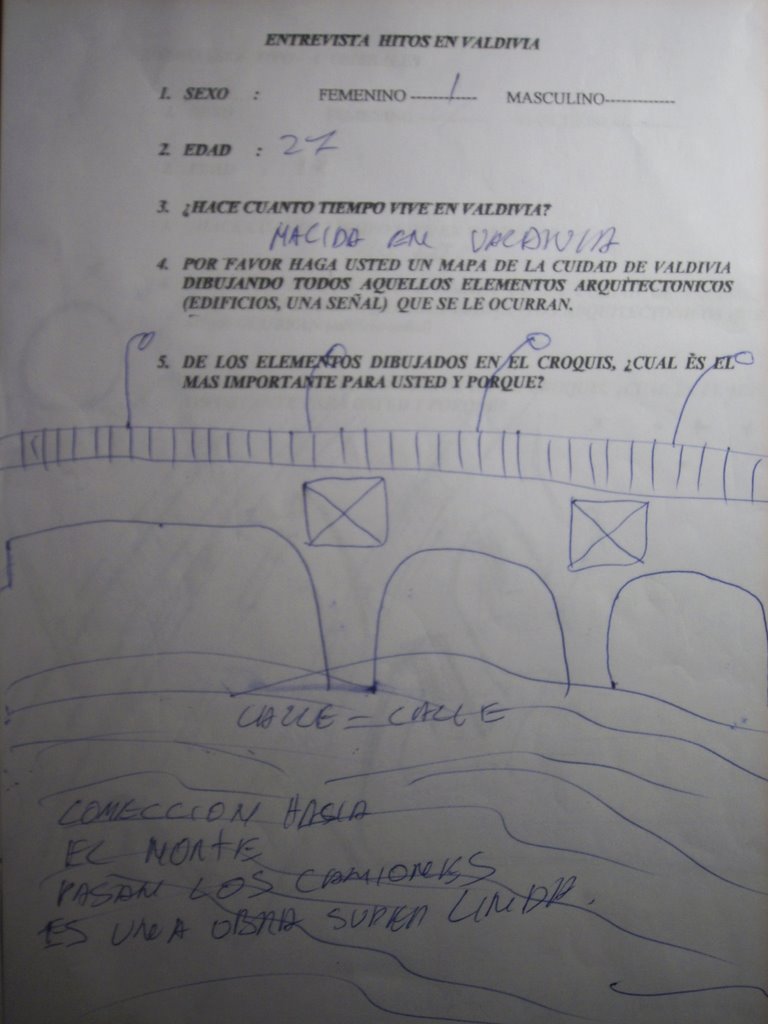 ENTREVISTA HITOS EN VALDIVIA
1. SEXO : FEMENINO -------/----- MASCULINO-------------
2. EDAD : 27
3. ¿HACE CUANTO TIEMPO VIVE EN VALDIVIA?
NACIDA EN VALDIVIA
4. POR FAVOR HAGA USTED UN MAPA DE LA CUIDAD DE VALDIVIA
DIBUJANDO TODOS AQUELLOS ELEMENTOS ARQUITECTONICOS
(EDIFICIOS, UNA SEÑAL) QUE SE LE OCURRAN.
5. DE LOS ELEMENTOS DIBUJADOS EN EL CROQUIS, ¿CUAL ÈS EL
MAS IMPORTANTE PARA USTED Y PORQUE?
CALLE = CALLE
CONECCION HASIA
EL NORTE
PASAN LOS CAMIONES
ES UNA OBRA SUPER LINDA.